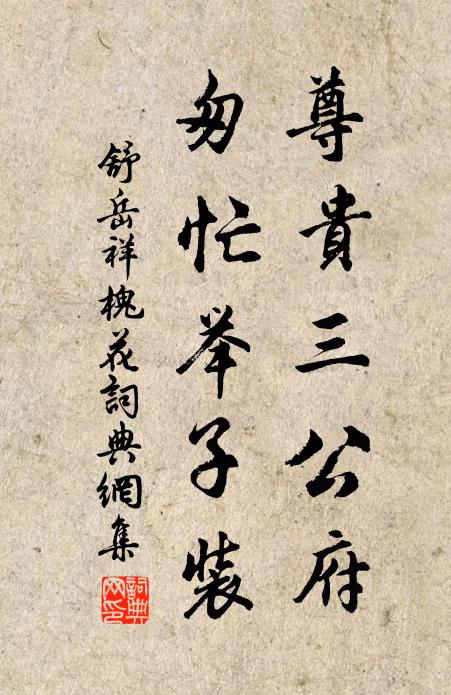 尊貴三公府
匆忙举子裝
舒岳祥槐花詞典網集
詞典网印